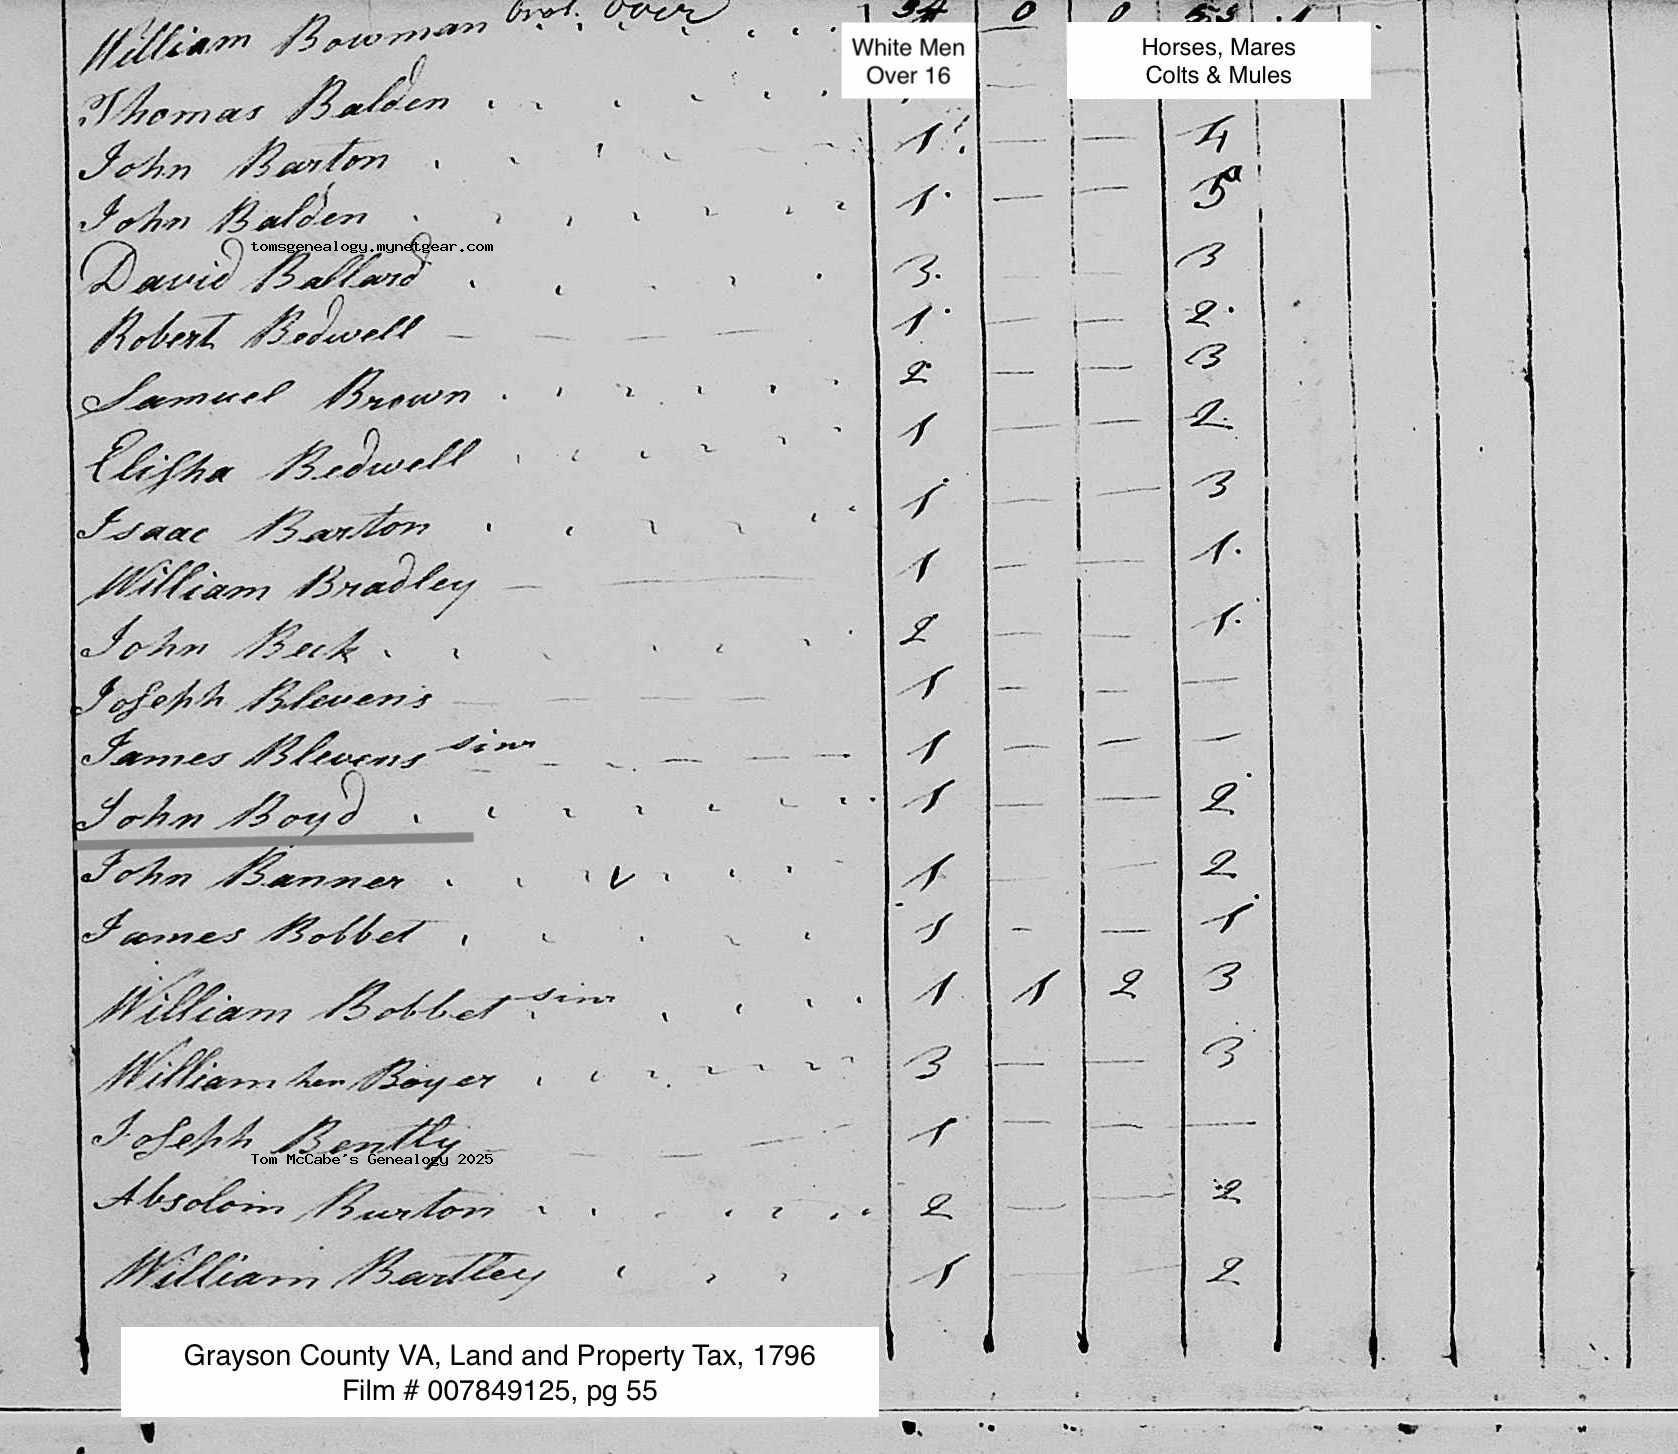 brot. over 34 0 0 53 1
William Bowman
White Men
Over 16
Horses, Mares
Colts & Mules
Thomas Balden —
John Barton 1 — — 4
John Balden 1 — — 5
tomsgenealogy.mynetgear.com
David Ballard 3 — — 3
Robert Bedwell 1 — — 2
Samuel Brown 2 — — 3
Elisha Bedwell 1 — — 2
Isaac Barton 1 — — 3
William Bradley 1 — — 1
John Beck 2 — — 1
Joseph Blevens 1 — — —
James Blevens sinr 1 — — —
John Boyd 1 — — 2
John Banner 1 — — 2
James Bobbet 1 — — 1
William Bobbet sinr 1 1 2 3
William hen Boyer 3 — — 3
Joseph Bently 1 — — —
Tom McCabe's Genealogy 2025
Absolom Burton 2 — — 2
William Bartley 1 — — 2
Grayson County VA, Land and Property Tax, 1796
Film # 007849125, pg 55